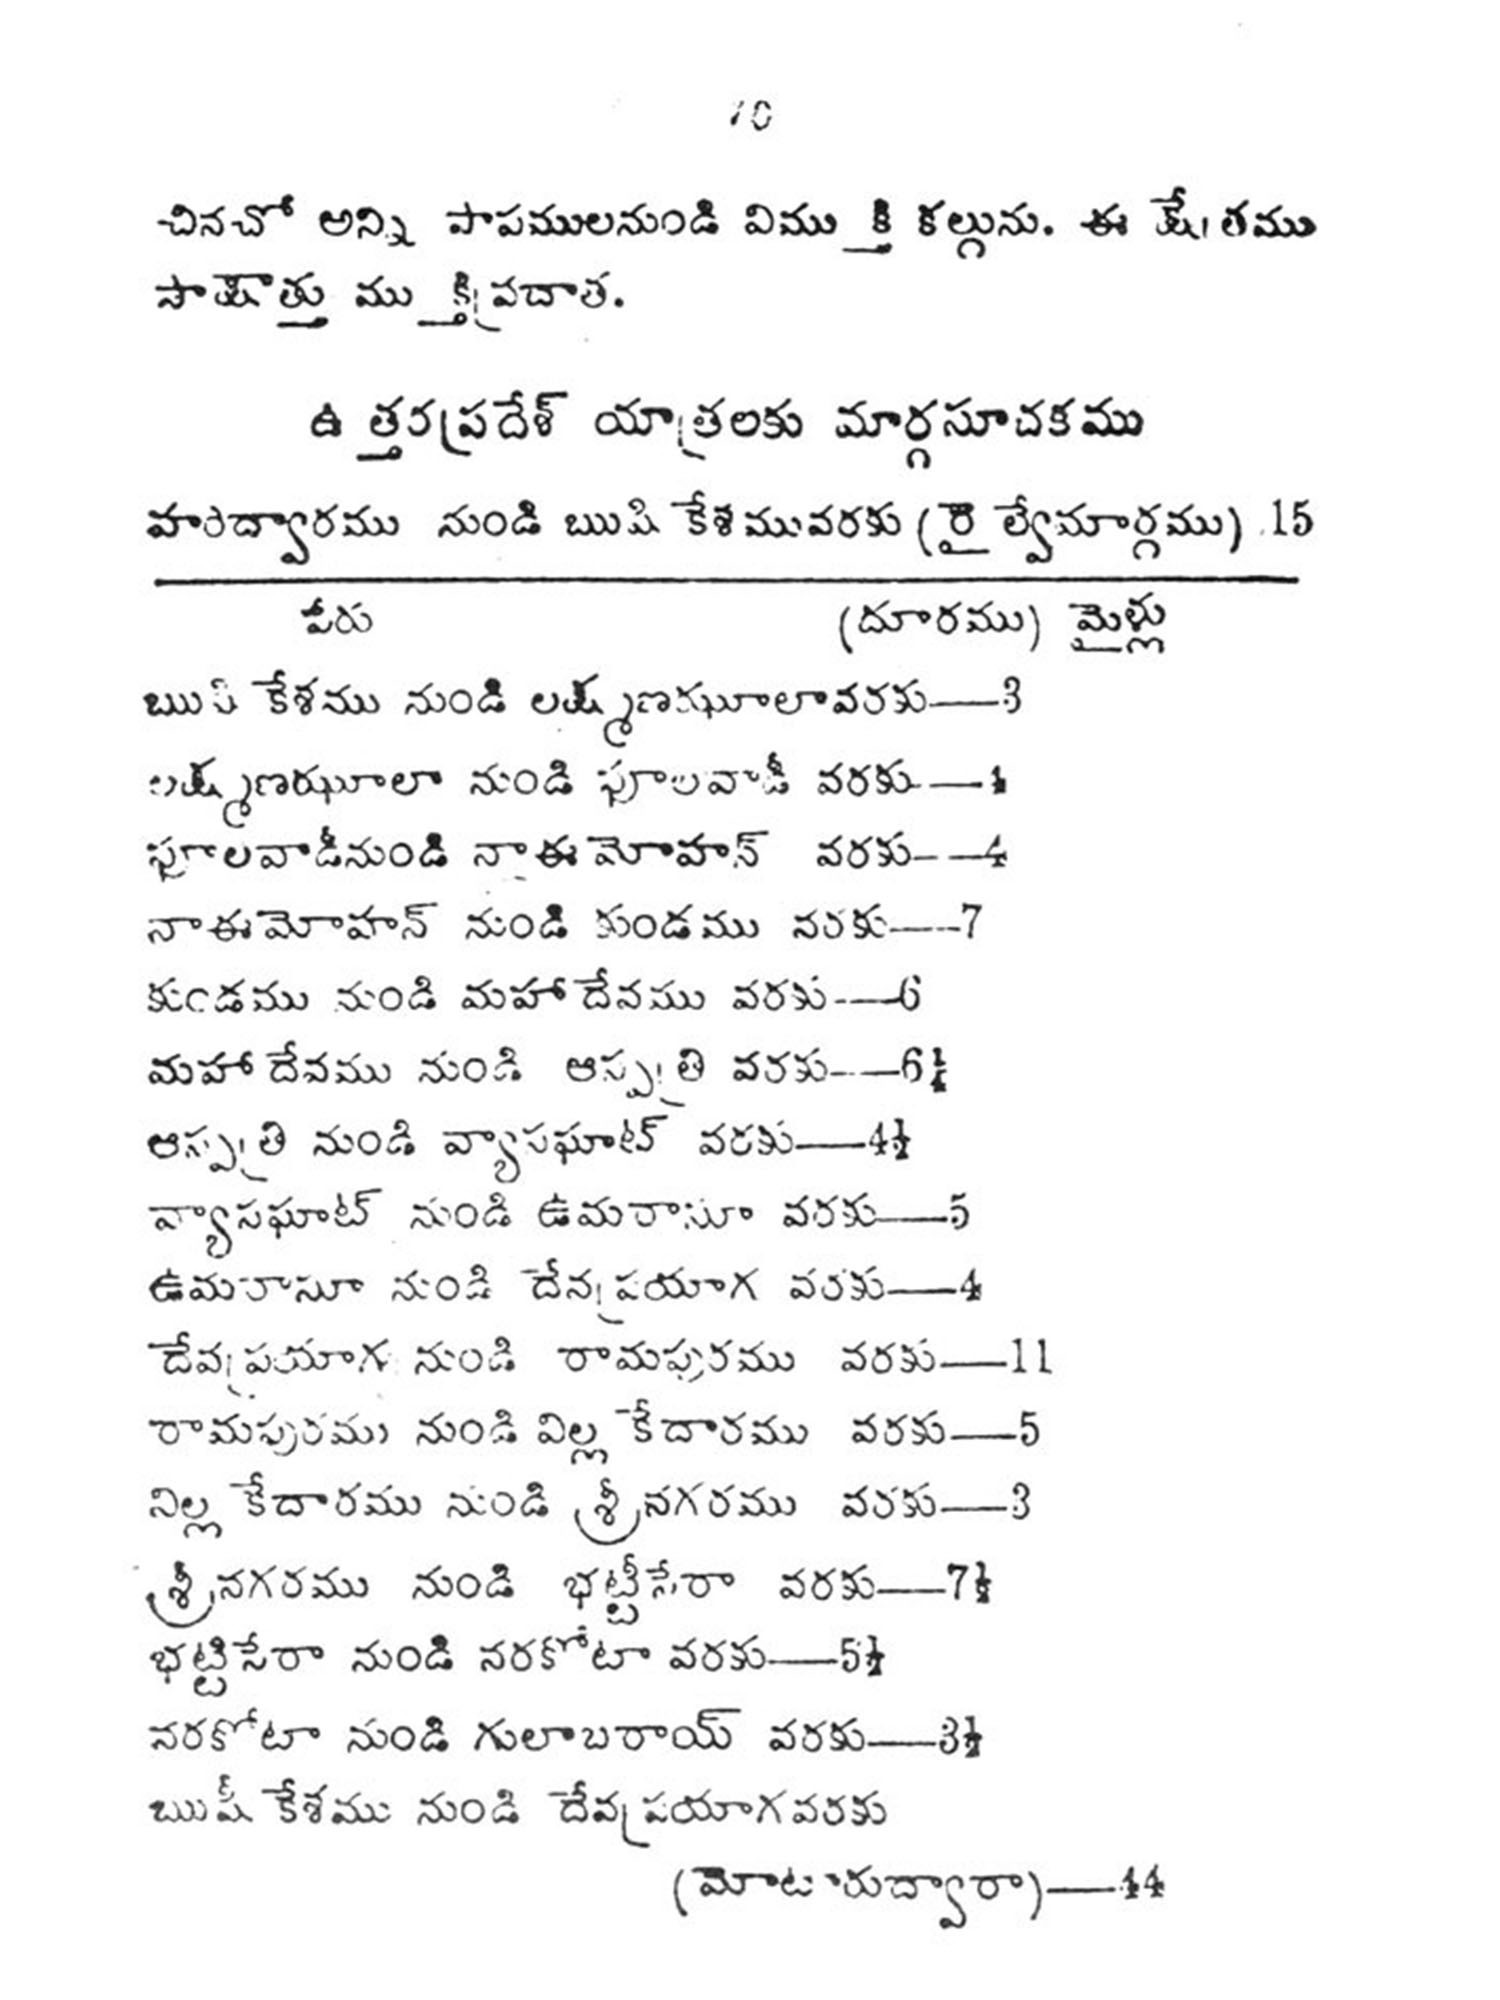 10
చినచో అన్ని పాపములనుండి విముక్తి కల్గును. ఈ క్షేత్రము
సాక్షాత్తు ముక్తిప్రదాత.
ఉత్తరప్రదేశ్ యాత్రలకు మార్గసూచకము
హరిద్వారము నుండి ఋషికేశమువరకు (రైల్వేమార్గము) 15
పేరు (దూరము) మైళ్లు
ఋషికేశము నుండి లక్ష్మణఝూలావరకు—3
లక్ష్మణఝూలా నుండి ఫూలవాడీ వరకు—
ఫూలవాడీనుండి నాఈమోహన్ వరకు—4
నాఈమోహన్ నుండి కుండము వరకు—7
కుండము నుండి మహాదేవము వరకు—6
మహాదేవము నుండి ఆస్పత్రి వరకు—6½
ఆస్పత్రి నుండి వ్యాసఘాట్ వరకు—4½
వ్యాసఘాట్ నుండి ఉమరాసూ వరకు—5
ఉమరాసూ నుండి దేవప్రయాగ వరకు—4
దేవప్రయాగ నుండి రామపురము వరకు—11
రామపురము నుండి విల్లకేదారము వరకు—5
నిల్లకేదారము నుండి శ్రీనగరము వరకు—3
శ్రీనగరము నుండి భట్టీసేరా వరకు—7½
భట్టిసేరా నుండి నరకోటా వరకు—5½
నరకోటా నుండి గులాబరాయ్ వరకు—3½
ఋషీకేశము నుండి దేవప్రయాగవరకు
(మోటారుద్వారా)—44